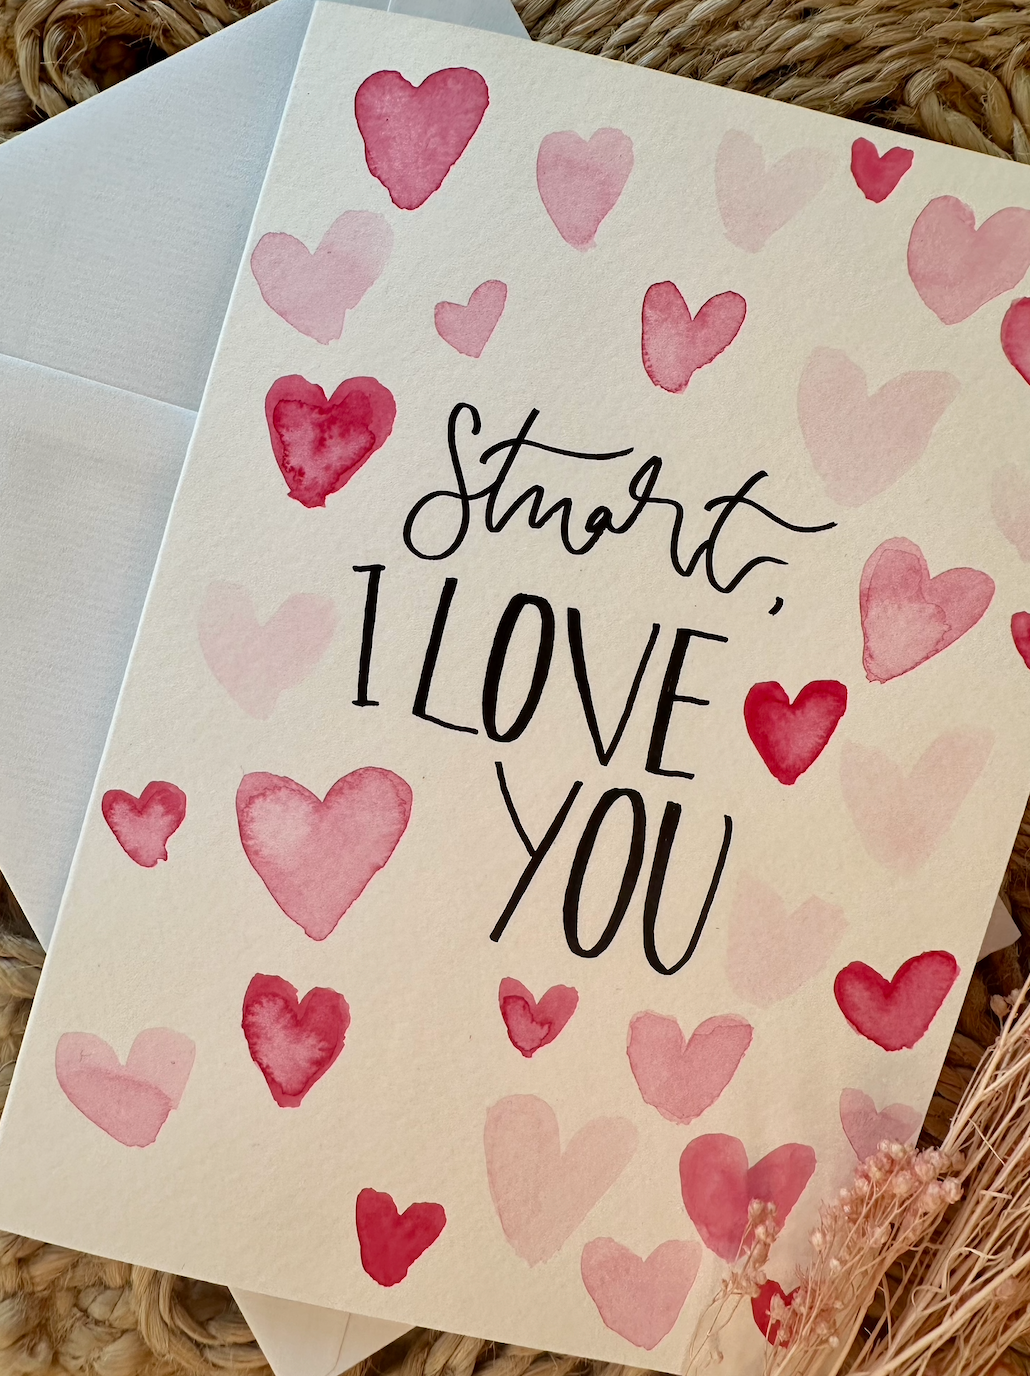 Stuart,
I LOVE
YOU